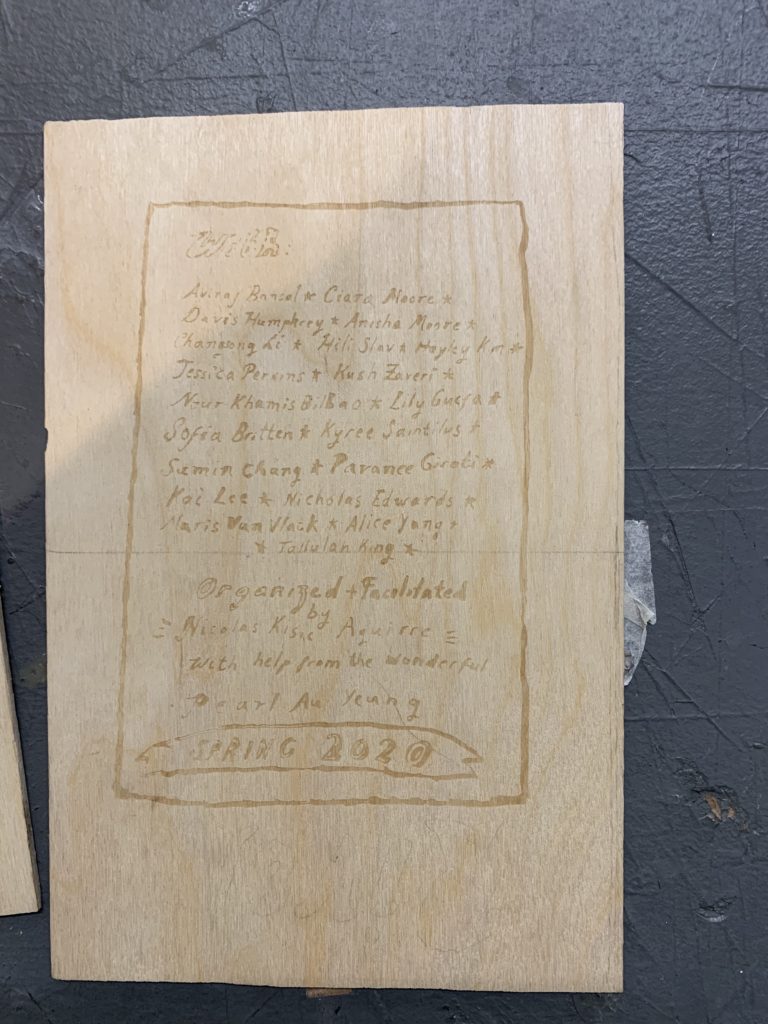 With:
Aviraj Bansal ★ Ciara Moore ★
Davis Humphrey ★ Anisha Moore ★
Changsong Li ★ Hili Slav ★ Hayley Km ★
Jessica Perkins ★ Kush Zaveri ★
Nour Khamis Bilbao ★ Lily
Sofia Britten ★ Kyree Saintilus ★
Sumin Chang ★ Paranee
Kai Lee ★ Nicholas Edwards ★
Maris Van Vlack ★ Alice Yang ★
★ Tallulah King ★
Organized + Facilitated
by
Nicolas Aguirre
With help from the wonderful
Pearl Au Yeung
SPRING 2020